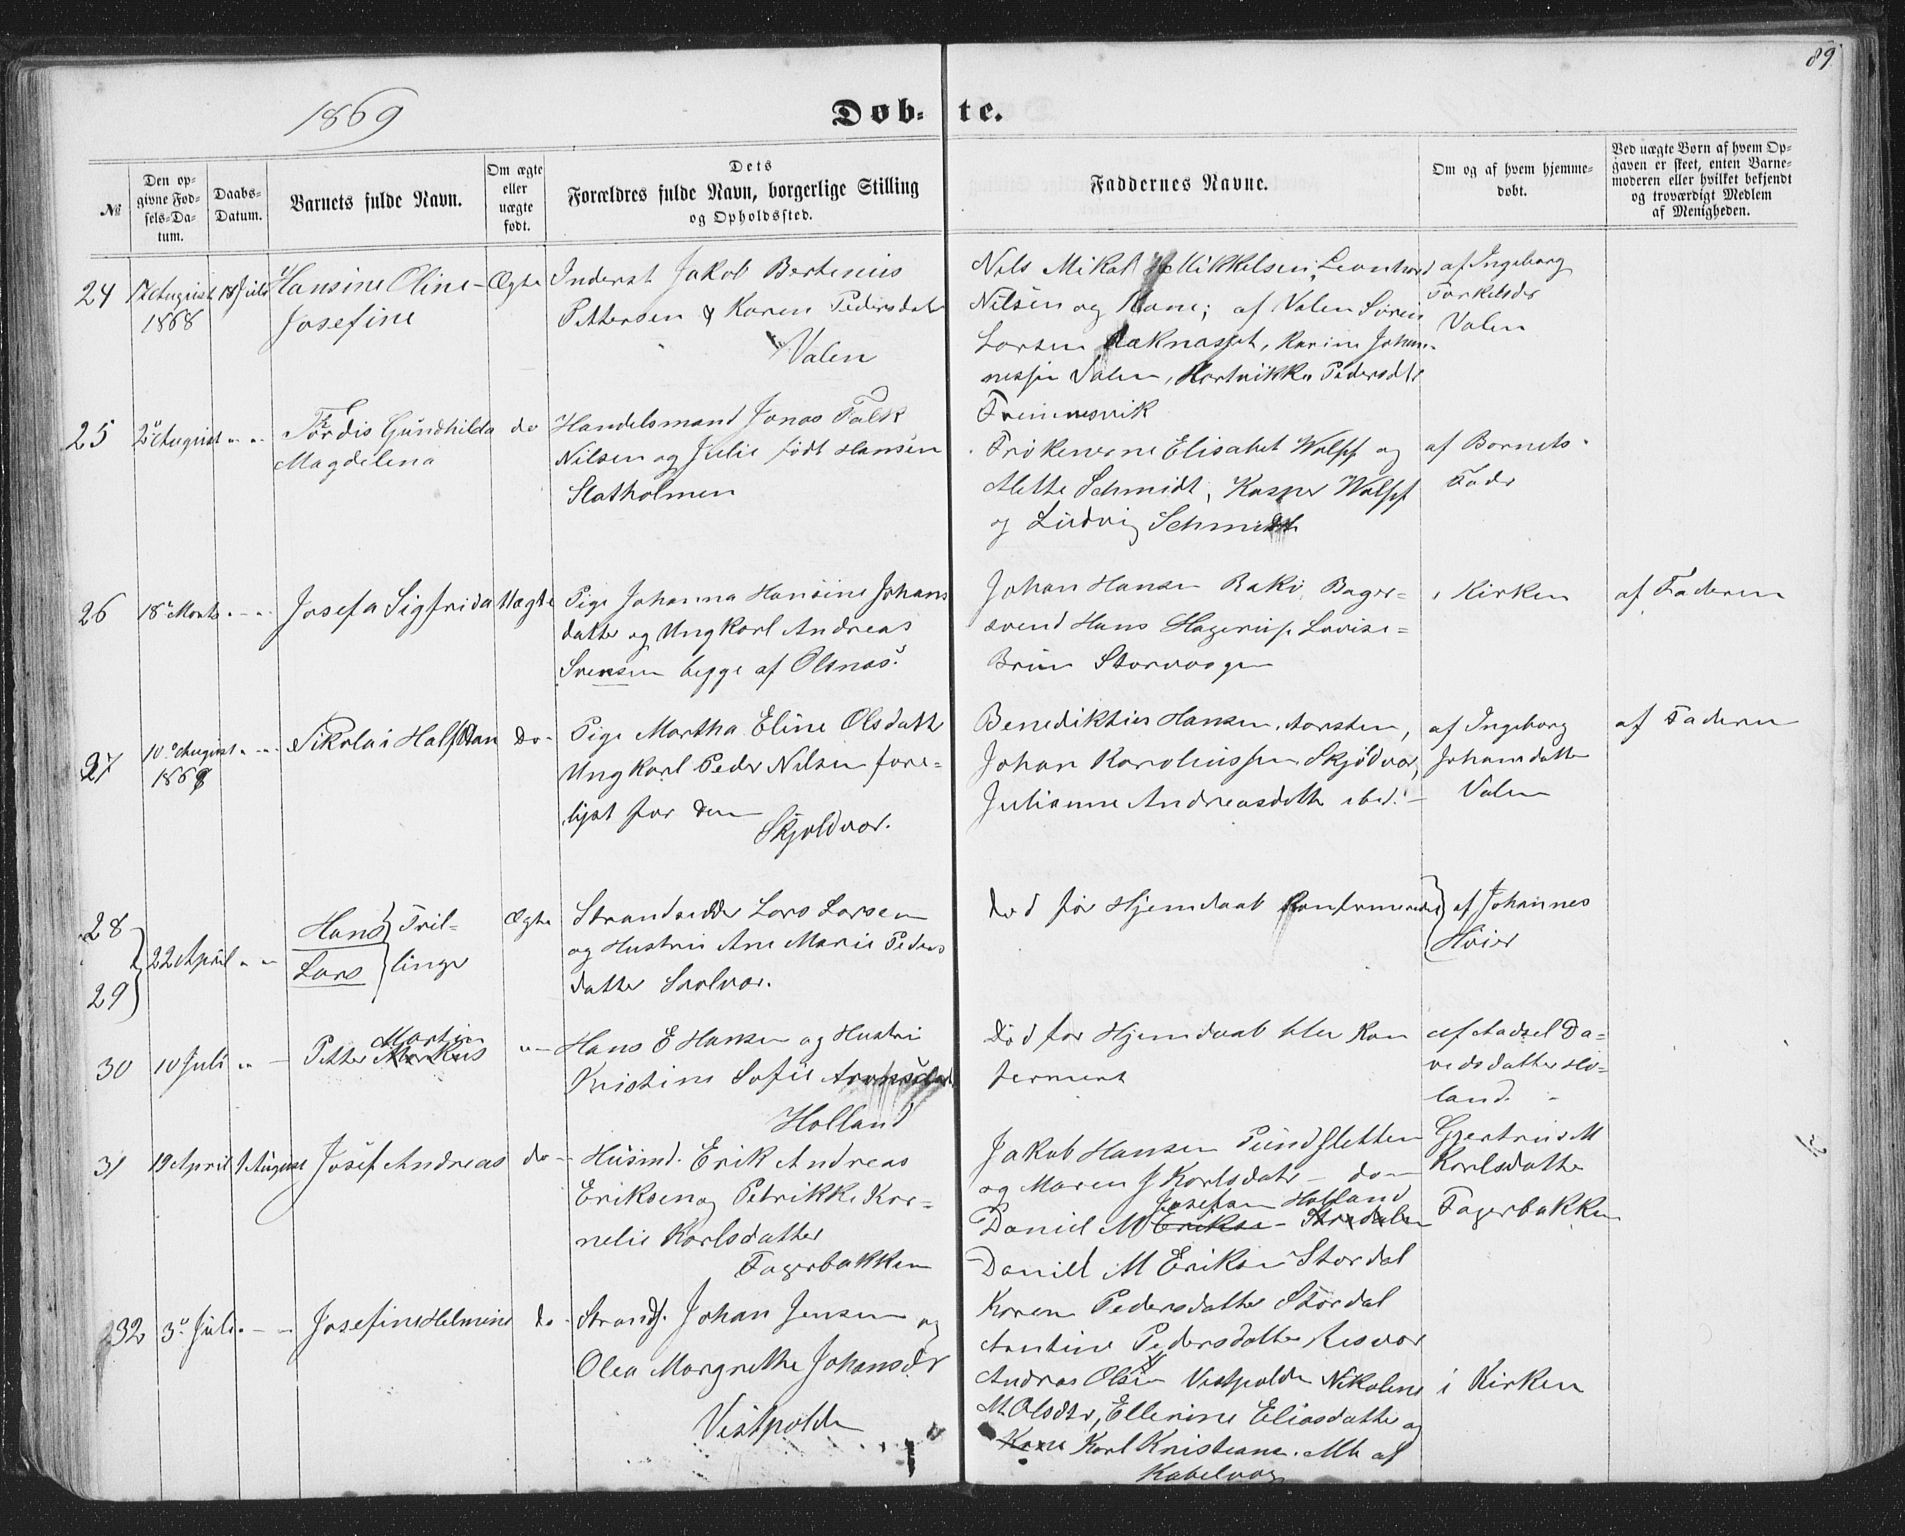 89
1869
Døb-te.
№
Den opgivne Fødsels-Datum.
Daabs-Datum.
Barnets fulde Navn.
Om ægte eller uægte født.
Dets Forældres fulde Navn, borgerlige Stilling og Opholdssted.
Faddernes Navne.
Om og af hvem hjemmedøbt.
Ved uægte Børn af hvem Opgaven er skeet, enten Barnemoderen eller hvilket bekjendt og troværdigt Medlem af Menigheden.
24 17 August 1868 18 Juli Hansine Oline Josefine Ægte
Inderst Jakob Bertinius
Pettersen & Karen Pedersdatr
Valen
Nils Mikal Mikkelsen, Leonhard
Nilsen og Kone; af Valen Sören
Larsen Karine Johan-
nessen Valen, Hartvikke Pedersdtr
af Ingeborg
Torkelsdr
Valen
25 25 August " " Tordis Gundhilda
Magdelena do
Handelsmand Jonas Falk
Nilsen og Julie født Hansen
Slotholmen
Frökenerne Elisabet Wolff og
Alette Schmidt, Kasper Wolff
og Ludvig Schmidt
af Barnets
Fader
26 18de Marts " " Josefa Sigfrida Uægte
Pige Johanna Hansine Johans
datter og Ungkarl Andreas
Svensen begge af Olsnæs.
Johan Hansen Bakö, Bager-
svend Hans Hagerup, Lovise
Brun Storvaagen
i Kirken
af Faderen
27 10de August 1868 " " Nikolai Halfdan Do
Pige Martha Eline Olsdatter
Ungkarl Peder Nilsen fore-
lyst for dem
Skjoldvær.
Benediktus Hansen,
Johan Karoliussen Skjoldvær,
Julianne Andreasdatter ibid.
af Ingeborg
Johansdatter
Valen
af Faderen
28
29
22 April " " Hans
Lars
Tvil-
linger
Ægte
Strandsidder Lars Larsen
og Hustru Ane Marie Peders
datter Svolvær.
död för Hjemdaab Konfirmeredes
af Johannes
Höier
30 10 Juli " — Petter Martin Markus "
Hans E Hansen og Hustru
Kristine Sofie
Holland
Död för Hjemdaab blev Kon
fermert
af Aadsel Da-
vidsdatter Ho-
land.
31 19 April 1 August Josef Andreas do
Husmd. Erik Andreas
Eriksen og Petrikke Kor-
nelie Karlsdatter
Fagerbakken
Jakob Hansen Sundsletten
og Maren J Karlsdatr — do
Josefsen Holland
Daniel M Erikse
Daniel M Eriksen Stordal
Karen Pedersdatter Stordal
Antine Pedersdatter Risvær
Gjertrud M
Karlsdatter
Fagerbakken
32 3de Juli " — Josefine Helmine do
Strands. Johan Jensen og
Olea Margrethe Johansdr
Vestpolden
Andreas Olsen Vestpolden Nikoline
M. Olsdtr, Ellerine Eliasdatter og
Kone Karl Kristians. Alle af
Kabelvaag
i Kirken